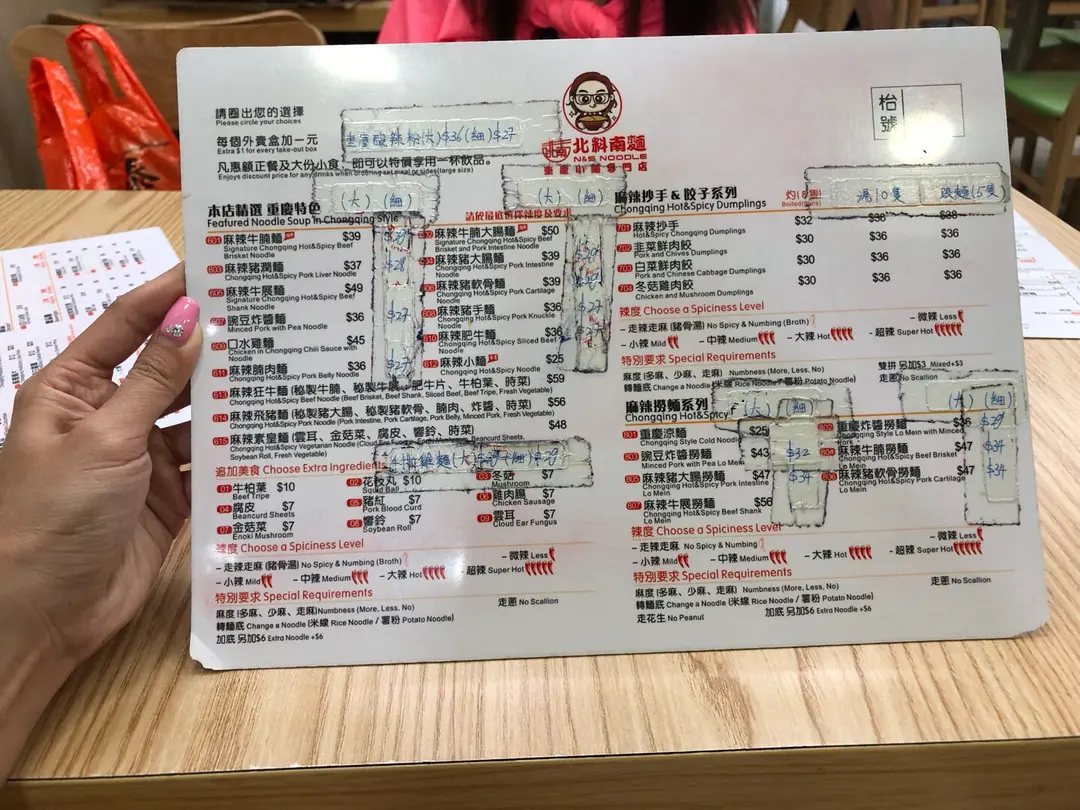 請圈出您的選擇
Please circle your choices
每個外賣盒加一元
Extra $1 for every take-out box
凡惠顧正餐及大份小食，即可以特價享用一杯飲品。
Enjoys discount price for any drinks when ordering set meal or sides(large size)
酸辣粉(大)$36(細)$27
北科南麵
N&S NOODLE
重慶小麵專門店
枱號
(大) (細)
(大) (細)
湯10隻
本店精選 重慶特色
Featured Noodle Soup in Chongqing Style
請於最底選擇辣度及要求
601 麻辣牛腩麵 $39
Signature Chongqing Hot&Spicy Beef Brisket Noodle
603 麻辣豬潤麵 $37 $28
Chongqing Hot&Spicy Pork Liver Noodle
605 麻辣牛展麵 $49
Signature Chongqing Hot&Spicy Beef Shank Noodle
607 豌豆炸醬麵 $36 $27
Minced Pork with Pea Noodle
609 口水雞麵 $45
Chicken in Chongqing Chili Sauce with Noodle
611 麻辣腩肉麵 $36 $27
Chongqing Hot&Spicy Pork Belly Noodle
602 麻辣牛腩大腸麵 $50
Signature Chongqing Hot&Spicy Beef Brisket and Pork Intestine Noodle
604 麻辣豬大腸麵 $39
Chongqing Hot&Spicy Pork Intestine Noodle
606 麻辣豬軟骨麵 $39
Chongqing Hot&Spicy Pork Cartilage Noodle
608 麻辣豬手麵 $36
Chongqing Hot&Spicy Pork Knuckle Noodle
610 麻辣肥牛麵 $36
Chongqing Hot&Spicy Sliced Beef Noodle
612 麻辣小麵 $25
Chongqing Hot&Spicy Noodle
613 麻辣狂牛麵 (秘製牛腩、秘製牛展、肥牛片、牛柏葉、時菜) $59
Chongqing Hot&Spicy Beef Noodle (Beef Brisket, Beef Shank, Sliced Beef, Beef Tripe, Fresh Vegetable)
614 麻辣飛豬麵 (秘製豬大腸、秘製豬軟骨、腩肉、炸醬、時菜) $56
Chongqing Hot&Spicy Pork Noodle (Pork Intestine, Pork Cartilage, Pork Belly, Minced Pork, Fresh Vegetable)
615 麻辣素皇麵 (雲耳、金菇菜、腐皮、響鈴、時菜) $48
Chongqing Hot&Spicy Vegetarian Noodle (Cloud Ear Fungus, Enoki Mushroom, Beancurd Sheets, Soybean Roll, Fresh Vegetable)
追加美食 Choose Extra Ingredients
01 牛柏葉 $10
Beef Tripe
02 花枝丸 $10
Squid Ball
03 冬菇 $7
Mushroom
04 腐皮 $7
Beancurd Sheets
05 豬紅 $7
Pork Blood Curd
06 雞肉腸 $7
Chicken Sausage
07 金菇菜 $7
Enoki Mushroom
08 響鈴 $7
Soybean Roll
09 雲耳 $7
Cloud Ear Fungus
辣度 Choose a Spiciness Level
- 走辣走麻 (豬骨湯) No Spicy & Numbing (Broth)
- 微辣 Less
- 小辣 Mild
- 中辣 Medium
- 大辣 Hot
- 超辣 Super Hot
特別要求 Special Requirements
麻度 (多麻、少麻、走麻) Numbness (More, Less, No)
走蔥 No Scallion
轉麵底 Change a Noodle (米線 Rice Noodle / 薯粉 Potato Noodle)
加底 另加$6 Extra Noodle +$6
麻辣抄手 & 餃子系列
Chongqing Hot&Spicy Dumplings
701 麻辣抄手 $32 $38 $38
Hot&Spicy Chongqing Dumplings
702 韮菜鮮肉餃 $30 $36 $36
Pork and Chives Dumplings
703 白菜鮮肉餃 $30 $36 $36
Pork and Chinese Cabbage Dumplings
704 冬菇雞肉餃 $30 $36 $36
Chicken and Mushroom Dumplings
辣度 Choose a Spiciness Level
- 走辣走麻 (豬骨湯) No Spicy & Numbing (Broth)
- 微辣 Less
- 小辣 Mild
- 中辣 Medium
- 大辣 Hot
- 超辣 Super Hot
特別要求 Special Requirements
雙拼 另加$3 Mixed+$3
麻度 (多麻、少麻、走麻) Numbness (More, Less, No)
走蔥 No Scallion
轉麵底 Change a Noodle (米線 Rice Noodle / 薯粉 Potato Noodle)
麻辣撈麵系列
Chongqing Hot&Spicy
(大) (細)
(大) (細)
801 重慶涼麵 $25
Chongqing Style Cold Noodle
802 重慶炸醬撈麵 $36 $29
Chongqing Style Lo Mein with Minced Pork
803 豌豆炸醬撈麵 $43 $32
Minced Pork with Pea Lo Mein
804 麻辣牛腩撈麵 $47 $34
Chongqing Hot&Spicy Beef Brisket Lo Mein
805 麻辣豬大腸撈麵 $47 $34
Chongqing Hot&Spicy Pork Intestine Lo Mein
806 麻辣豬軟骨撈麵 $47 $34
Chongqing Hot&Spicy Pork Cartilage Lo Mein
807 麻辣牛展撈麵 $56
Chongqing Hot&Spicy Beef Shank Lo Mein
辣度 Choose a Spiciness Level
- 走辣走麻 No Spicy & Numbing
- 微辣 Less
- 小辣 Mild
- 中辣 Medium
- 大辣 Hot
- 超辣 Super Hot
特別要求 Special Requirements
麻度 (多麻、少麻、走麻) Numbness (More, Less, No)
走蔥 No Scallion
轉麵底 Change a Noodle (米線 Rice Noodle / 薯粉 Potato Noodle)
走花生 No Peanut
加底 另加$6 Extra Noodle +$6